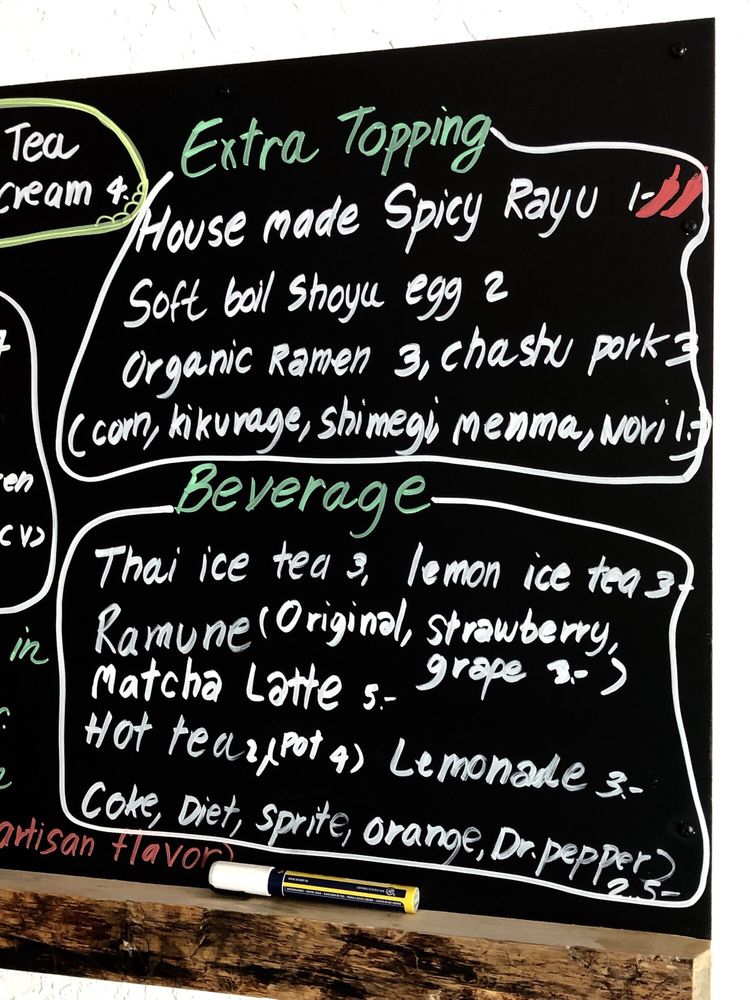 Tea
Cream 4.
Extra Topping
House made Spicy Rayu 1-
Soft boil Shoyu egg 2
Organic Ramen 3, chashu pork 3
(corn, kikurage, shimegi, menma, Nori 1.-)
Beverage
Thai ice tea 3, lemon ice tea 3-
Ramune (Original, strawberry,
grape 3.-)
Matcha Latte 5.-
Hot tea 2, (Pot 4) Lemonade 3.-
Coke, Diet, Sprite, orange, Dr. pepper)
2.5-
in
artisan flavor)